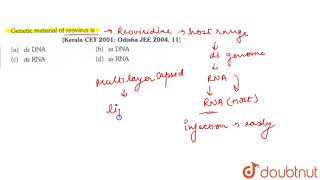 Genetic material of reovirus is → Reoviridine → host range
[Kerala CET 2001; Odisha JEE 2004, 11]
(a) ds DNA (b) ss DNA
(c) ds RNA (d) ss RNA
ds genome
RNA
RNA (Host)
injection → easily
multilayer capsid
li
doubtnut